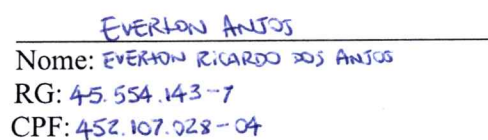 EVERTON ANJOS
Nome: EVERTON RICARDO DOS ANJOS
RG: 45.554.143-7
CPF: 452.107.028-04